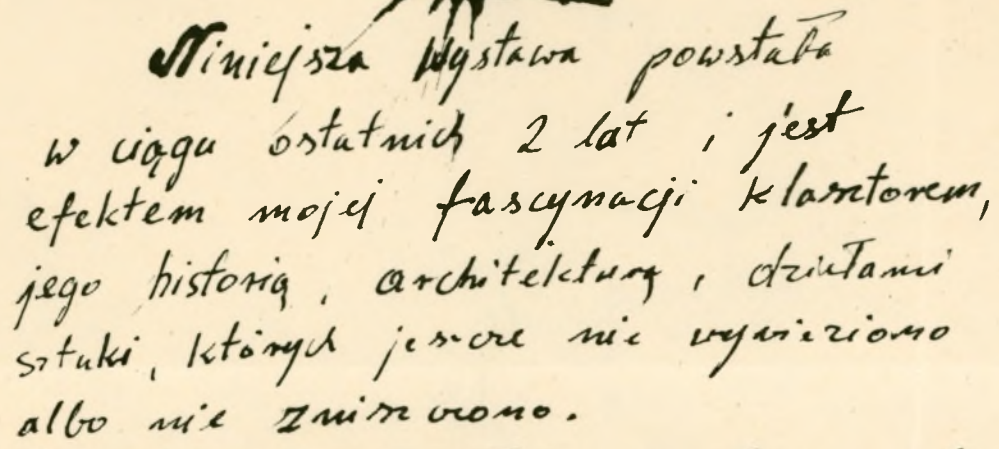 Niniejsza Wystawa powstała
w ciągu ostatnich 2 lat i jest
efektem mojej fascynacji klasztorem,
jego historią, architekturą, dziełami
sztuki, których jeszcze nie wywieziono
albo nie zniszczono.